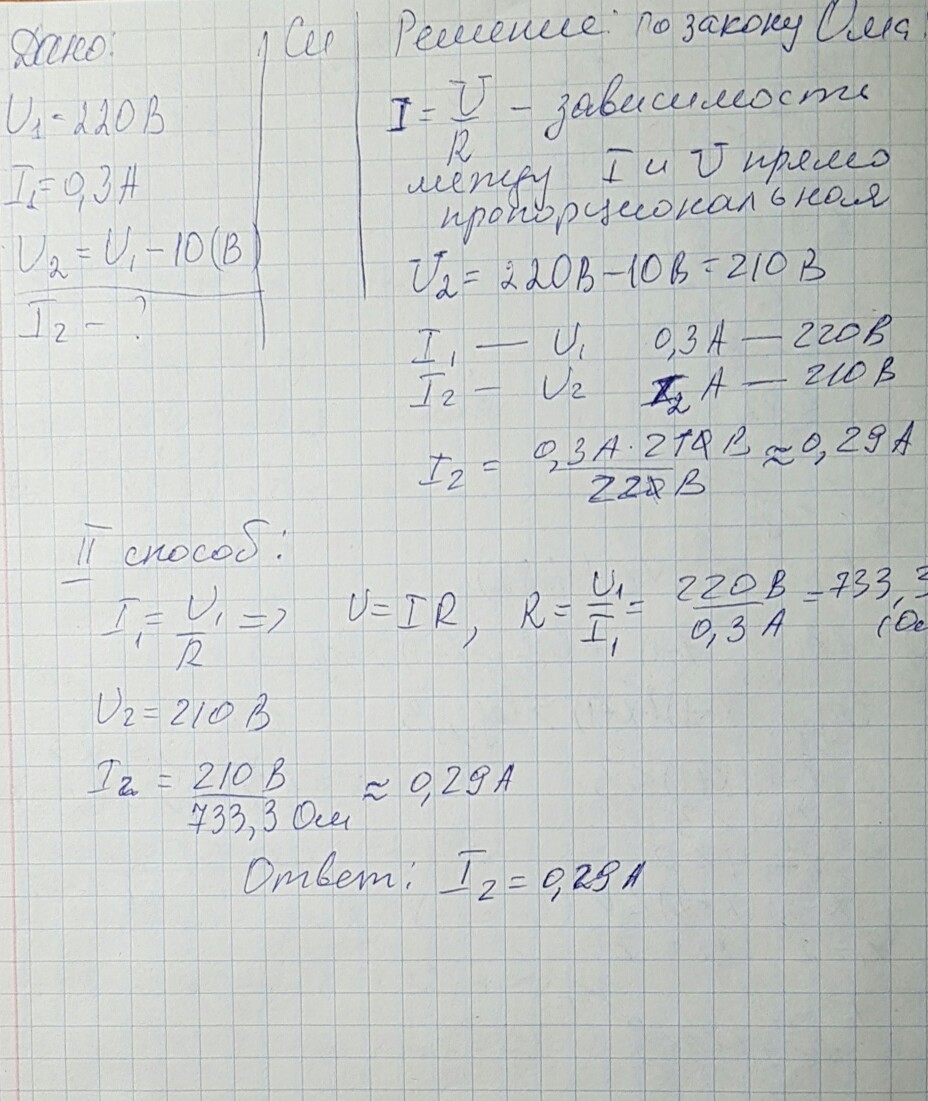 Дано:
U₁ = 220 В
I₁ = 0,3 А
U₂ = U₁ – 10 (В)
I₂ – ?
Си
Решение: по закону Ома
I = U/R – зависимость
между I и U прямо
пропорциональная
U₂ = 220 В – 10 В = 210 В
I₁ — U₁ 0,3 А — 220 В
I₂ — U₂ I₂ А — 210 В
I₂ = 0,3 А · 210 В / 220 В ≈ 0,29 А
II способ:
I₁ = U₁/R => U = IR, R = U₁/I₁ = 220 В / 0,3 А = 733,3
U₂ = 210 В
I₂ = 210 В / 733,3 Ом ≈ 0,29 А
Ответ: I₂ = 0,29 А